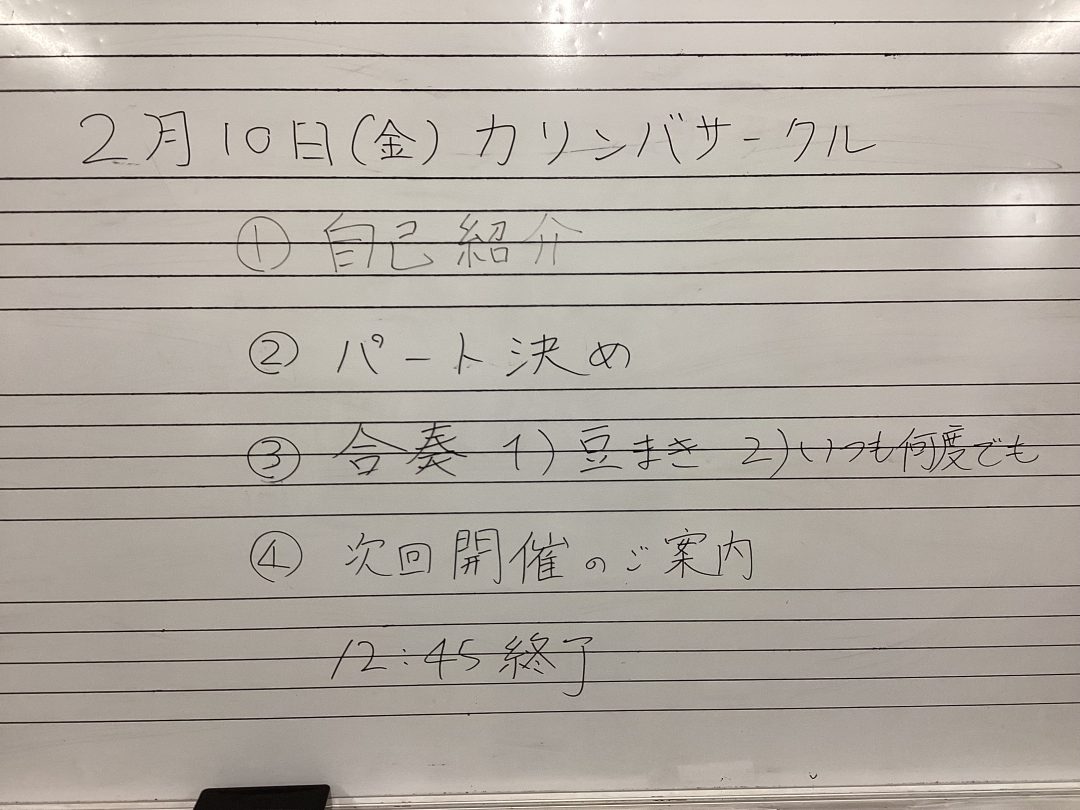 2月10日(金)カリンバサークル
① 自己紹介
② パート決め
③ 合奏 1)豆まき 2)いつも何度でも
④ 次回開催のご案内
12:45終了